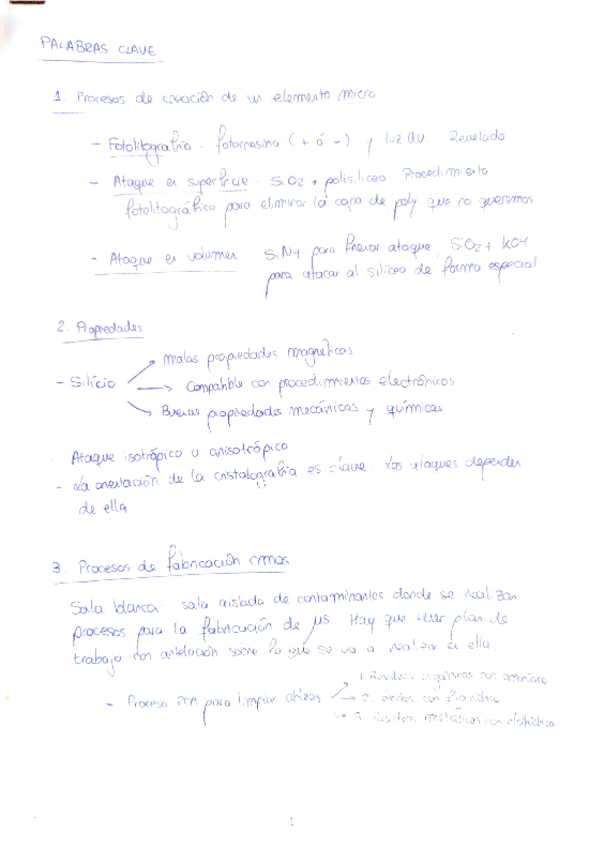 PALABRAS CLAVE
1. Procesos de creación de un elemento micro
- Fotolitografía: fotorresina (+ ó -) y luz UV. Revelado
- Ataque en superficie: SiO2 + polisiliceo Procedimiento
fotolitográfico para eliminar la capa de poly que no queremos
- Ataque en volumen: SiN4 para frenar ataque. SiO2 + KOH
para atacar al siliceo de forma especial
2. Propiedades
- Silicio → Malas propiedades magnéticas
→ Compatible con procedimientos electrónicos
→ Buenas propiedades mecánicas y químicas
Ataque isotrópico o anisotrópico
- La orientación de la cristalografía es clave. Los ataques dependen
de ella
3. Procesos de fabricación CMOS
Sala blanca: sala aislada de contaminantes donde se realizan
procesos para la fabricación de μs. Hay que tener plan de
trabajo con antelación sobre lo que se va a realizar en ella.
- Proceso para limpiar obleas → 1. Residuos orgánicos con amoniaco
→ 2. óxidos con
→ 3. Residuos metálicos con
1